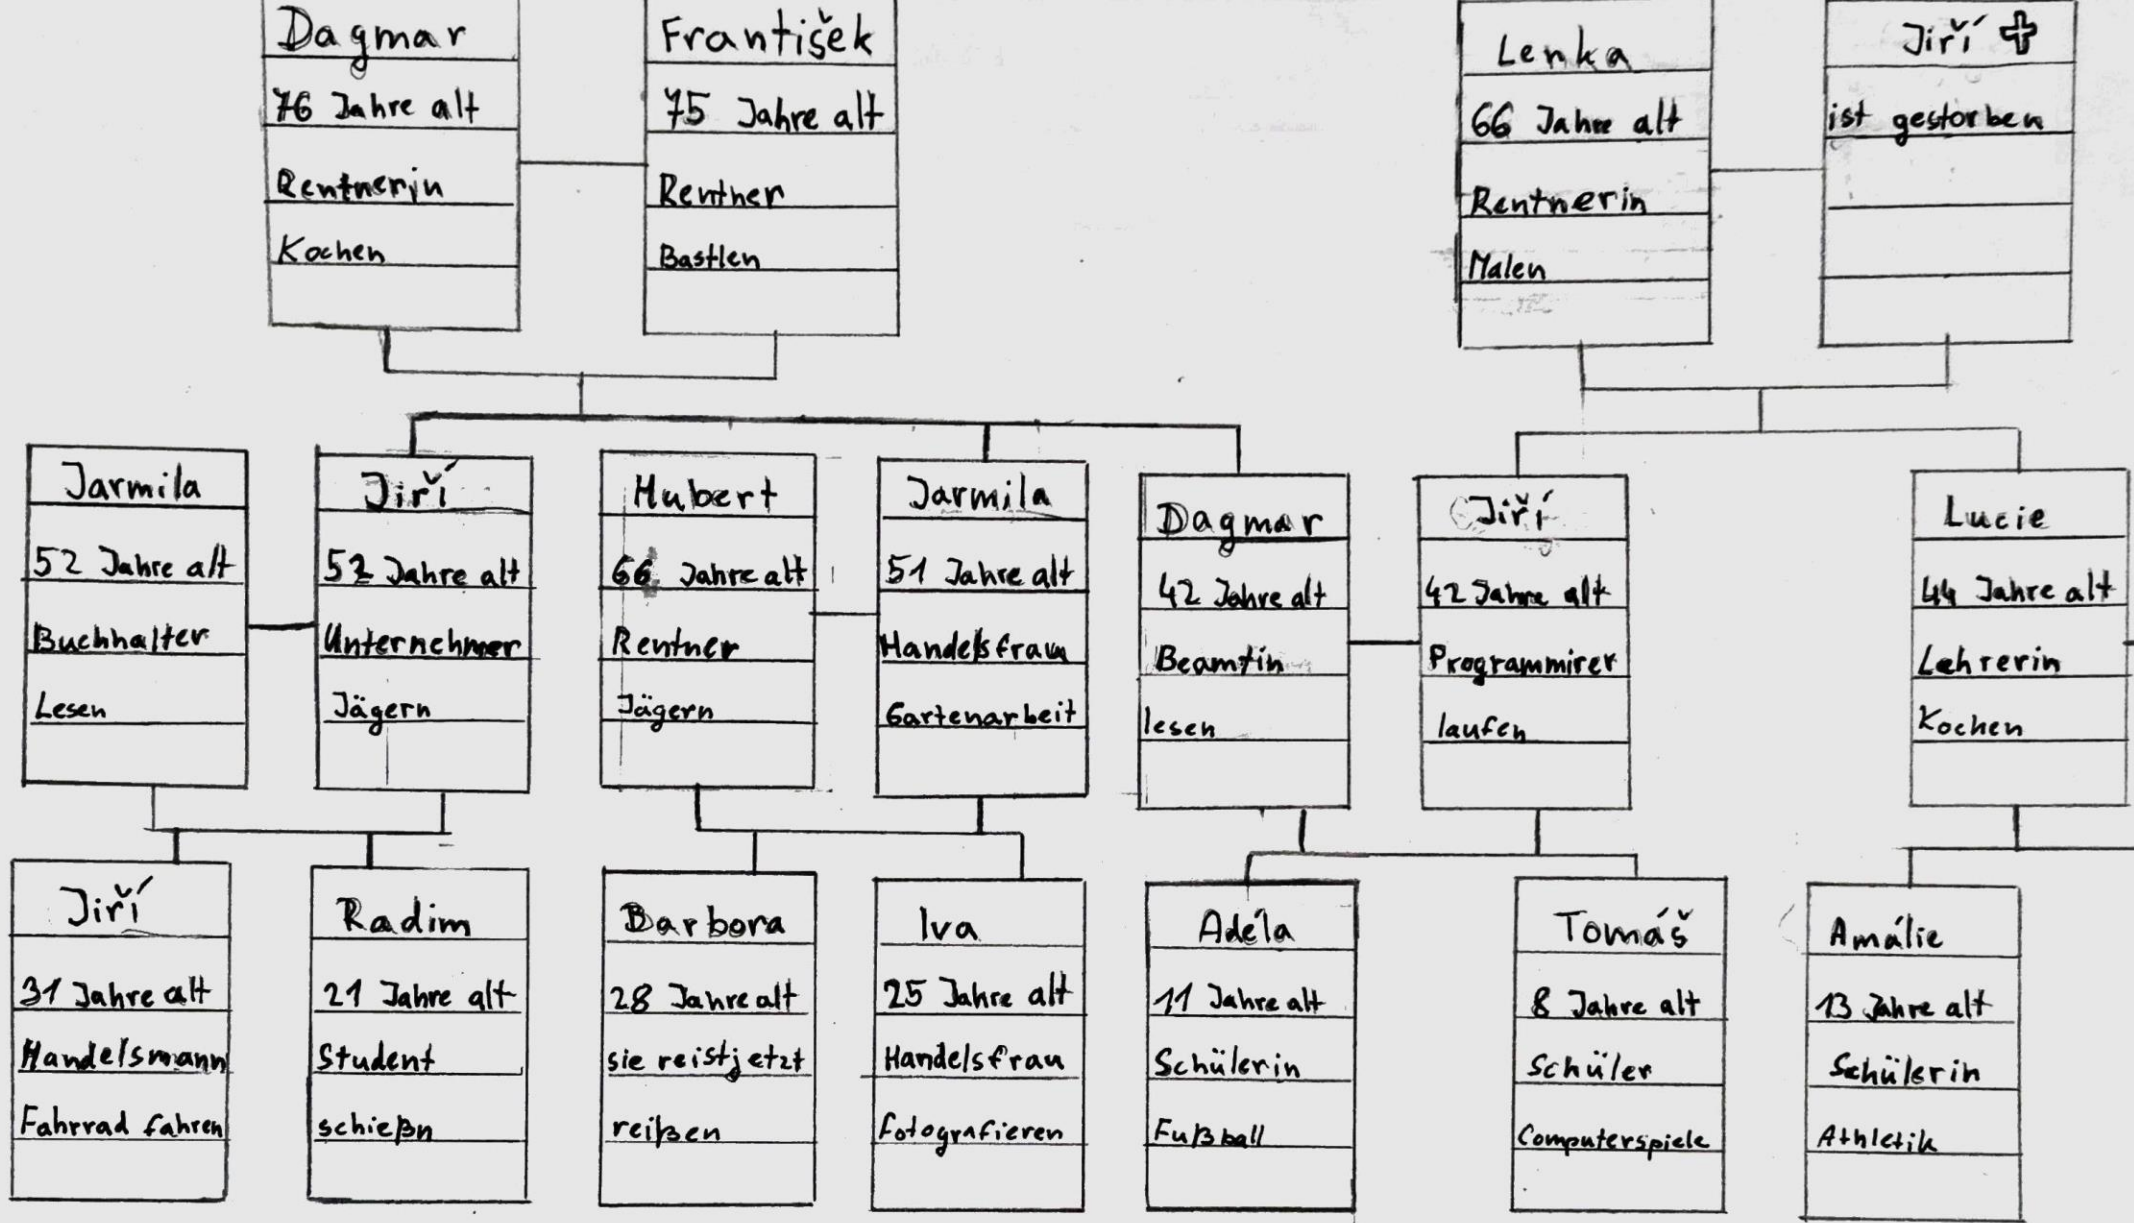 Dagmar
76 Jahre alt
Rentnerin
Kochen
František
75 Jahre alt
Rentner
Bastlen
Lenka
66 Jahre alt
Rentnerin
Malen
Jiří
ist gestorben
Jarmila
52 Jahre alt
Buchhalter
Lesen
Jiří
52 Jahre alt
Unternehmer
Jägern
Hubert
66 Jahre alt
Rentner
Jägern
Jarmila
51 Jahre alt
Handelsfrau
Gartenarbeit
Dagmar
42 Jahre alt
Beamtin
lesen
Jiří
42 Jahre alt
Programmirer
laufen
Lucie
44 Jahre alt
Lehrerin
Kochen
Jiří
31 Jahre alt
Handelsmann
Fahrrad fahren
Radim
21 Jahre alt
Student
schießn
Barbora
28 Jahre alt
sie reist jetzt
reißen
Iva
25 Jahre alt
Handelsfrau
fotografieren
Adéla
11 Jahre alt
Schülerin
Fußball
Tomáš
8 Jahre alt
Schüler
Computerspiele
Amálie
13 Jahre alt
Schülerin
Athletik